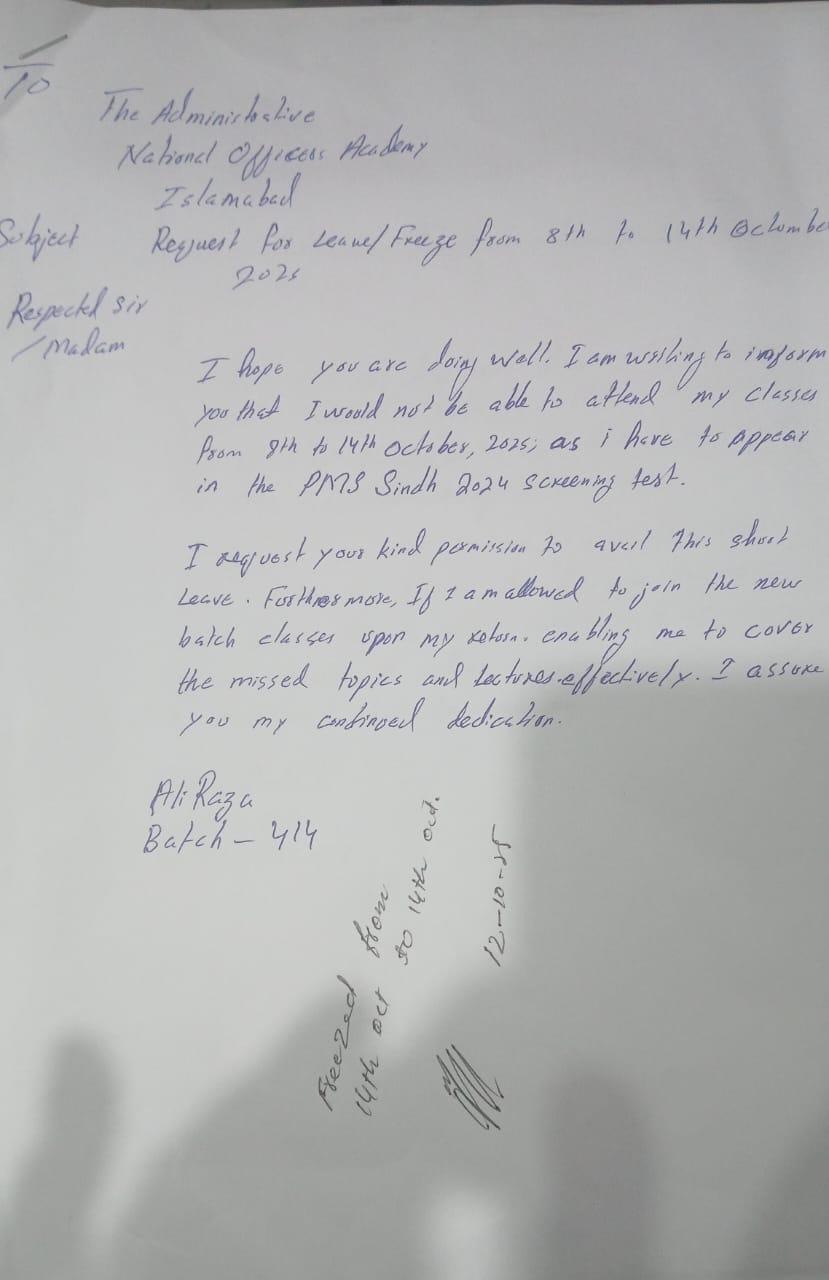 To
The Administrative
National Officers Academy
Islamabad
Subject Request for Leave/Freeze from 8th to 14th Octombe
2025
Respected Sir
/Madam
I hope you are doing well. I am writing to inform
you that I would not be able to attend my classes
from 8th to 14th October, 2025; as i have to appear
in the PMS Sindh 2024 screening test.
I request your kind permission to avail this short
Leave. Furthermore, If I am allowed to join the new
batch classes upon my return. enabling me to cover
the missed topics and lectures effectively. I assure
you my continued dedication.
Ali Raza
Batch - 414
Freezed from
14th oct to 14th oct.
12-10-25